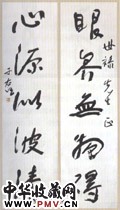 眼界無物礙
世祿先生正
心源似波清
于右任
中华收藏网
WWW.PMV.CN